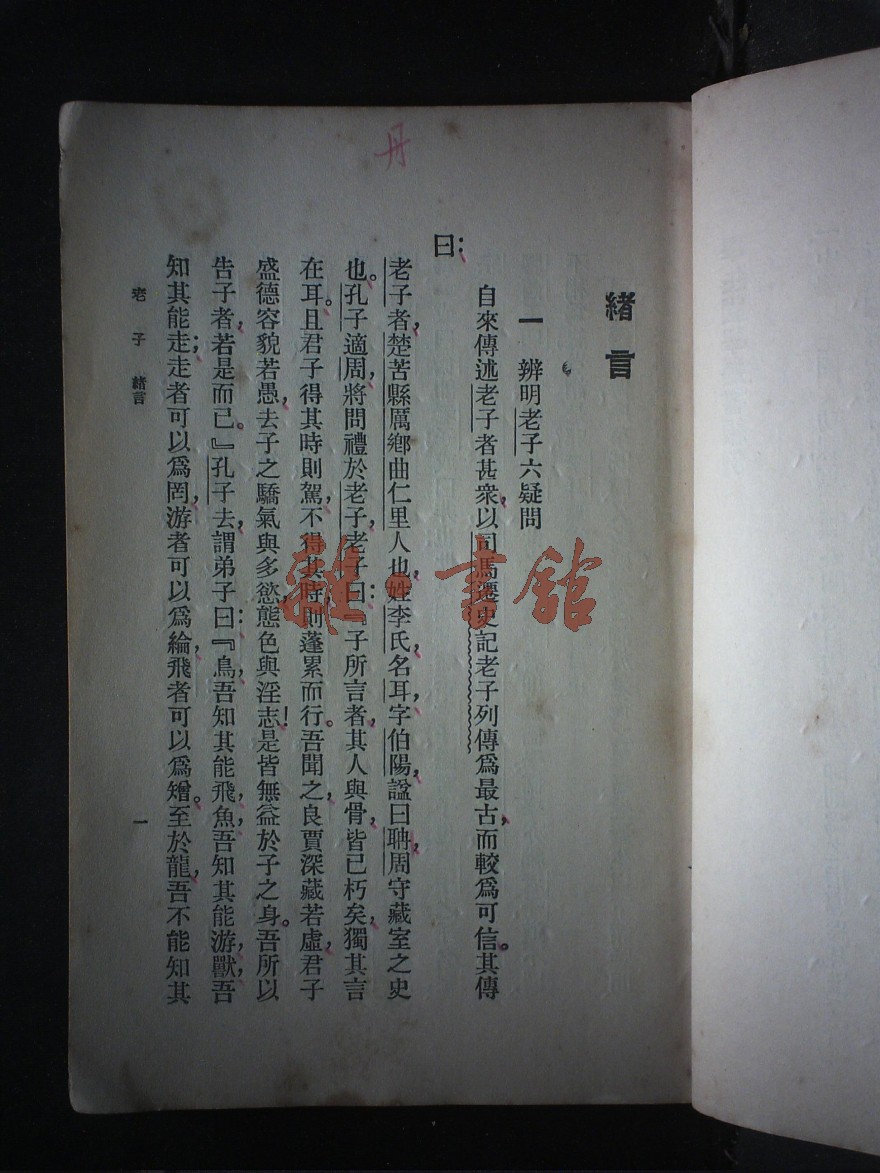 丹
緒言
一 辨明老子六疑問
自來傳述老子者甚衆，以司馬遷史記老子列傳爲最古，而較爲可信。其傳
曰：
老子者，楚苦縣厲鄉曲仁里人也，姓李氏，名耳，字伯陽，諡曰聃，周守藏室之史
也。孔子適周，將問禮於老子，老子曰：『子所言者，其人與骨，皆已朽矣，獨其言
在耳。且君子得其時則駕，不得其時，則蓬累而行。吾聞之，良賈深藏若虛，君子
盛德容貌若愚，去子之驕氣與多慾，態色與淫志！是皆無益於子之身。吾所以
告子者，若是而已。』孔子去，謂弟子曰：『鳥，吾知其能飛，魚，吾知其能游，獸，吾
知其能走；走者可以爲罔，游者可以爲綸，飛者可以爲矰。至於龍，吾不能知其
老子 緒言
一
雜·書館